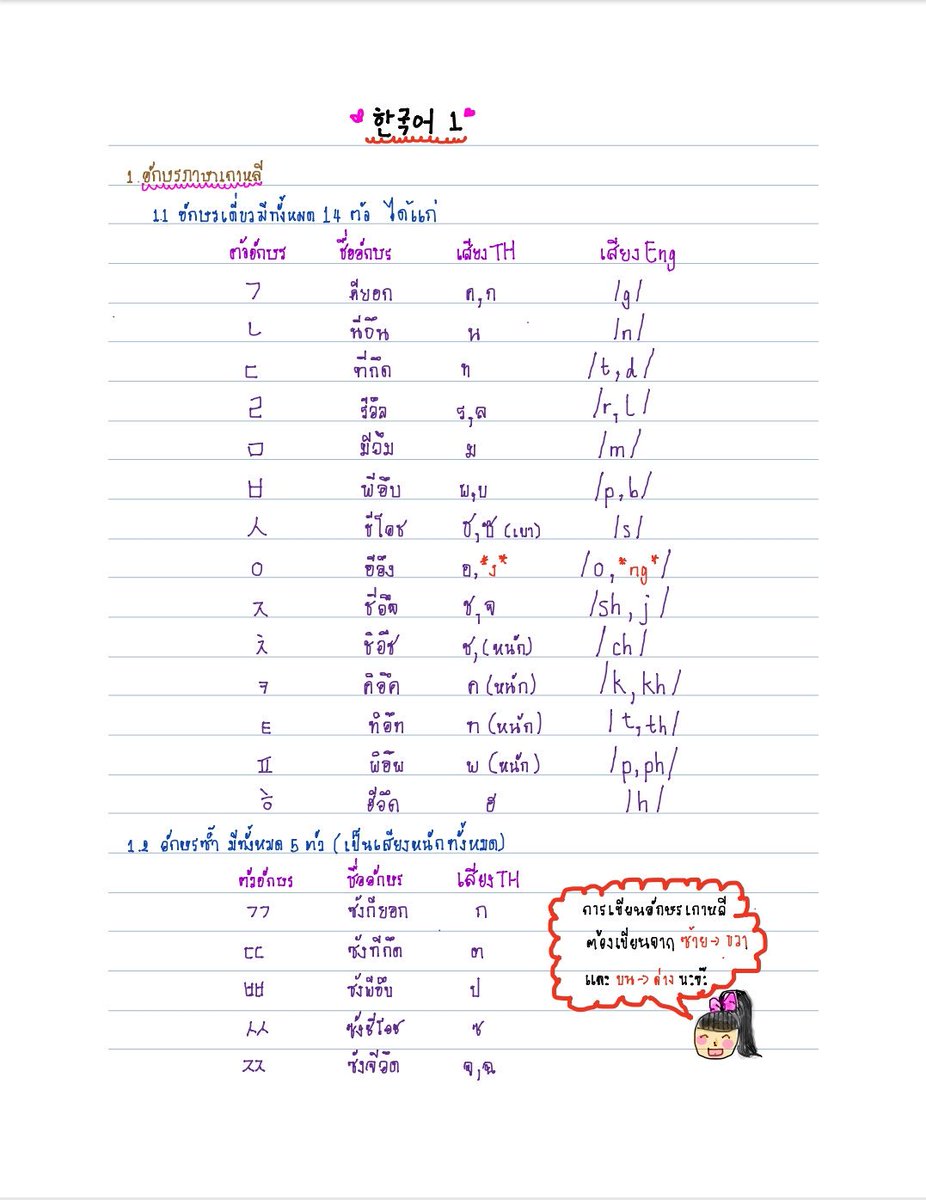 한국어 1
1. อักษรภาษาเกาหลี
1.1 อักษรเดี่ยวมีทั้งหมด 14 ตัว ได้แก่
ตัวอักษร ชื่ออักษร เสียง TH เสียง Eng
ㄱ คียอก ค,ก /g/
ㄴ นีอึน น /n/
ㄷ ทีกึด ท /t,d/
ㄹ รีอึล ร,ล /r,l/
ㅁ มีอึม ม /m/
ㅂ พีอึบ พ,บ /p,b/
ㅅ ชีโอซ ช,ซ (เบา) /s/
ㅇ อีอึง อ,*ง* /o,*ng*/
ㅈ ชีอึจ ช,จ /sh,j/
ㅊ ชิอึช ช,(หนัก) /ch/
ㅋ คิอึค ค (หนัก) /k,kh/
ㅌ ทิอึท ท (หนัก) /t,th/
ㅍ พิอึพ พ (หนัก) /p,ph/
ㅎ ฮีอึด ฮ /h/
1.2 อักษรซ้ำ มีทั้งหมด 5 ตัว (เป็นเสียงหนักทั้งหมด)
ตัวอักษร ชื่ออักษร เสียง TH
ㄲ ซังกียอก ก
ㄸ ซังทีกึด ต
ㅃ ซังพีอึบ ป
ㅆ ซังชีโอช ซ
ㅉ ซังจีอึด จ,ฉ
การเขียนอักษรเกาหลี
ต้องเขียนจาก ซ้าย→ ขวา
และ บน→ ล่าง นะจ๊ะ